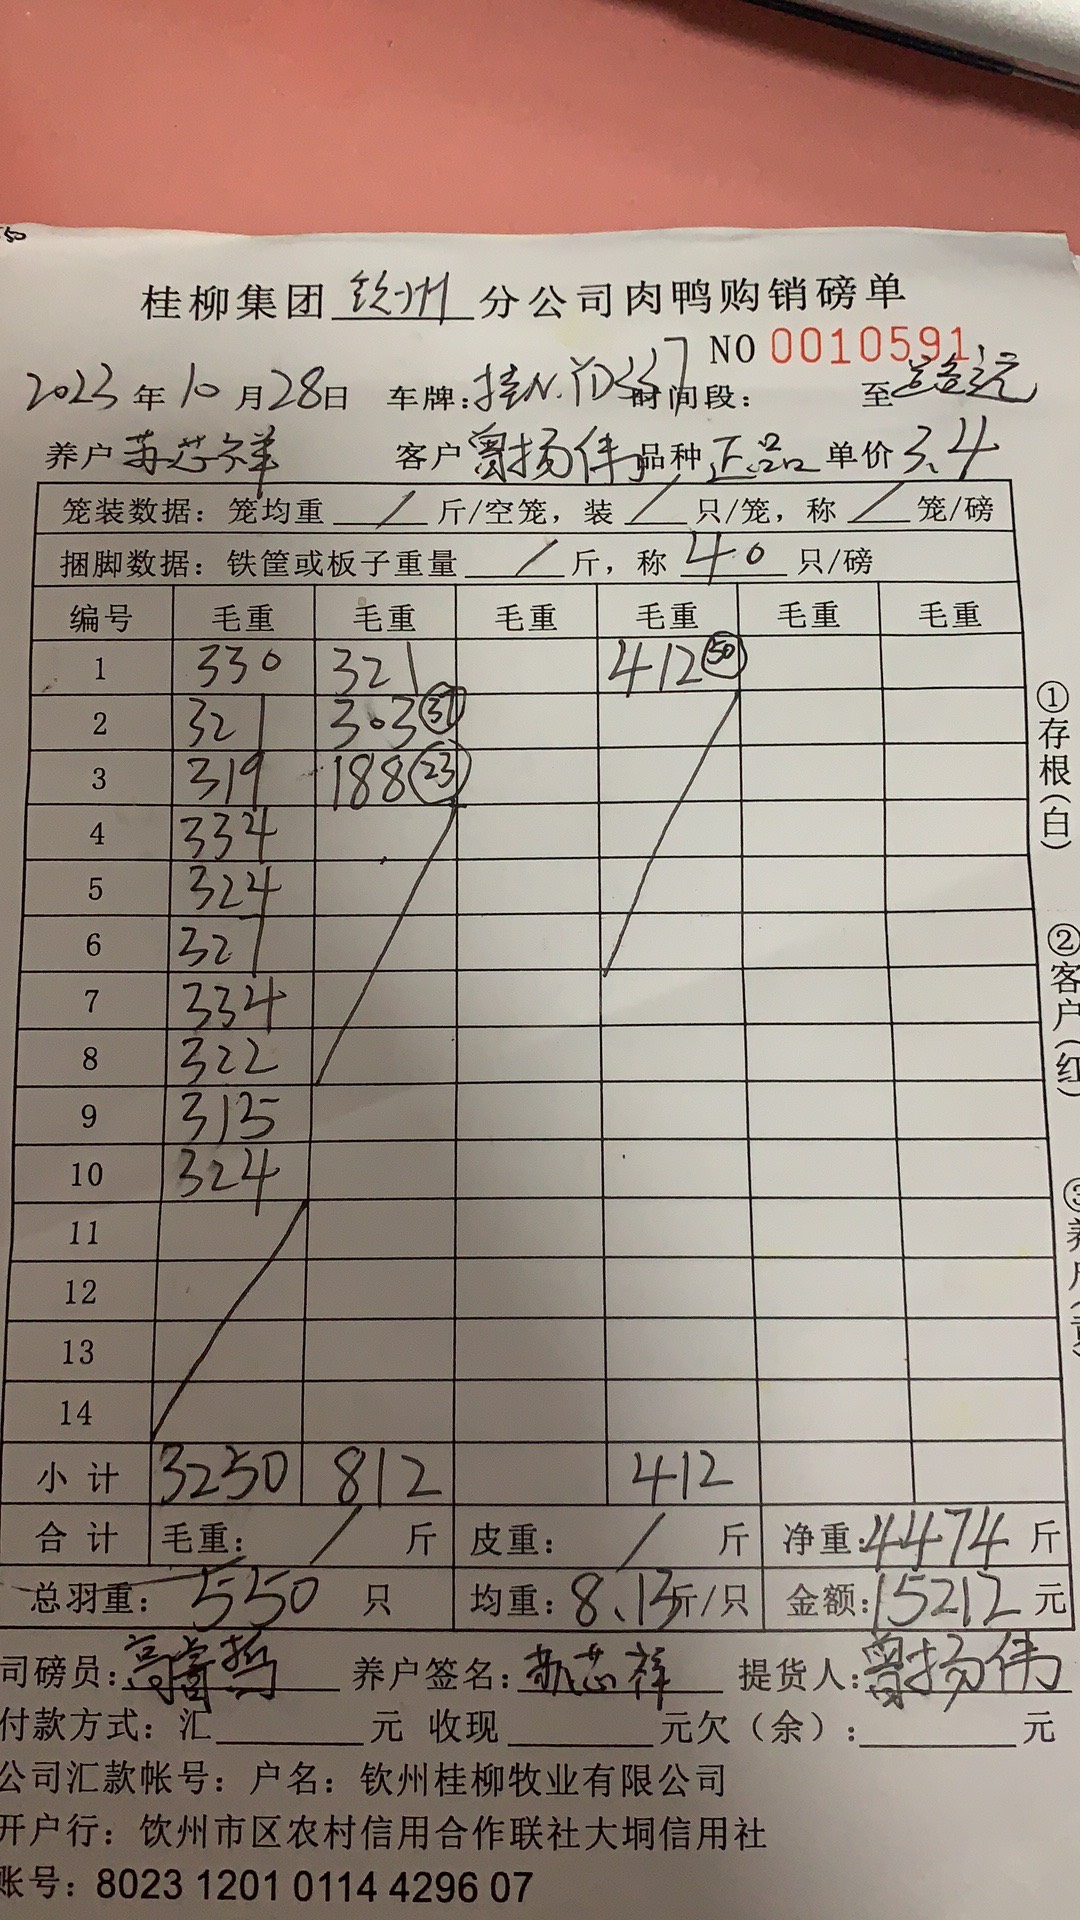 50
桂柳集团 钦州 分公司肉鸭购销磅单
NO 0010591
2023 年 10 月 28 日 车牌: 桂N.D337 时间段: 至
养户 芯祥 客户 曾扬伟 品种 正品 单价 3.4
笼装数据: 笼均重 / 斤/空笼, 装 / 只/笼, 称 / 笼/磅
捆脚数据: 铁筐或板子重量 / 斤, 称 40 只/磅
编号 毛重 毛重 毛重 毛重 毛重 毛重
1 330 321 412 50
2 321 303 37
3 319 188 23
4 334
5 324
6 327
7 334
8 322
9 315
10 324
11
12
13
14
小计 3250 812 412
合计 毛重: / 斤 皮重: / 斤 净重: 4474 斤
总羽重: 550 只 均重: 8.13 斤/只 金额: 15212 元
司磅员: 高 养户签名: 芯祥 提货人: 曾扬伟
付款方式: 汇 元 收现 元欠(余): 元
公司汇款帐号: 户名: 钦州桂柳牧业有限公司
开户行: 钦州市区农村信用合作联社大垌信用社
账号: 8023 1201 0114 4296 07
①存根(白)
②客户(红)